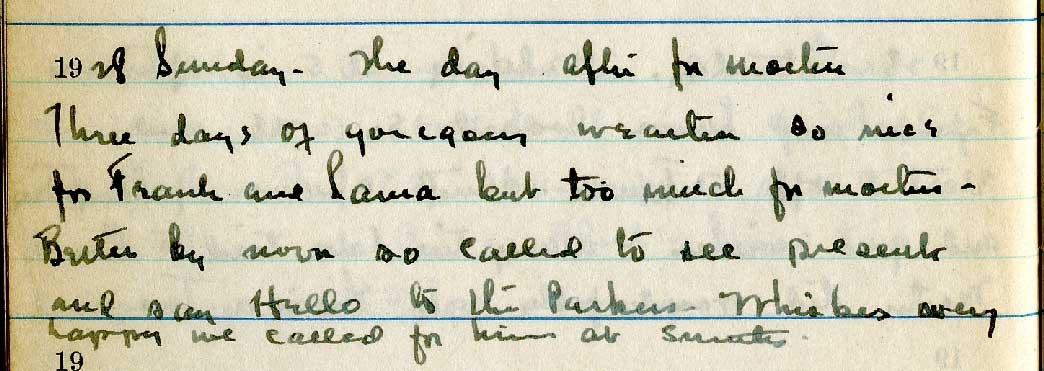 1928 Sunday - The day after for
Three days of so nice
for Frank and but too much for
Better by noon so called to see presents
and say Hello to the Parkers - Whiskers very
happy we called for him at
19